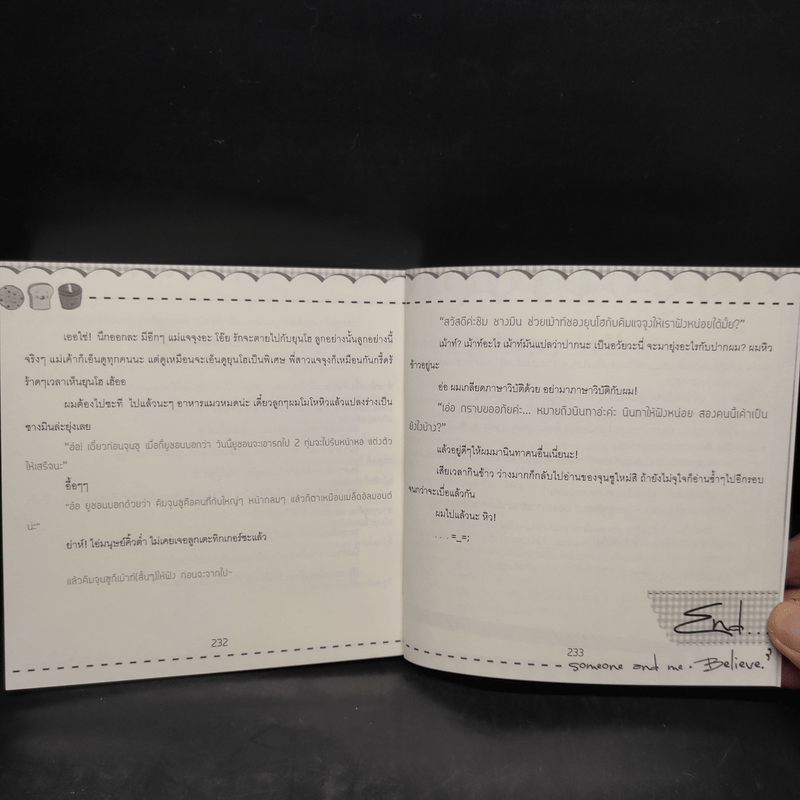 เออใช่! นึกออกละ มีอีกๆ แม่แจจุงอะ โอ๊ย รักจะตายไปกับยุนโฮ ลูกอย่างนั้นลูกอย่างนี้
จริงๆ แม่เค้าก็เอ็นดูทุกคนนะ แต่ดูเหมือนจะเอ็นดูยุนโฮเป็นพิเศษ พี่สาวแจจุงก็เหมือนกันกรี๊ดร้
ร้าดๆเวลาเห็นยุนโฮ เฮ้ออ
ผมต้องไปซะที ไปแล้วนะๆ อาหารแมวหมดน่ะ เดี๋ยวลูกๆผมโมโหหิวแล้วแปลงร่างเป็น
ชางมินล่ะยุ่งเลย
"อ๋อ! เดี๋ยวก่อนจุนซู เมื่อกี้ยูชอนบอกว่า วันนี้ยูชอนจะเอารถไป 2 ทุ่มจะไปรับหน้าหอ แต่งตัว
ให้เสร็จนะ"
อื้อๆๆ
"อ๋อ ยูชอนบอกด้วยว่า คิมจุนซูคือคนที่ก้นใหญ่ๆ หน้ากลมๆ แล้วก็ตาเหมือนเมล็ดอัลมอนด์
น่ะ"
ย่าห์! ไอ่มนุษย์คิ้วต่ำ ไม่เคยเจอลูกเตะทิกเกอร์ซะแล้ว
แล้วคิมจุนซูก็เม้าท์(สั้นๆ)ให้ฟัง ก่อนจะจากไป~
232
"สวัสดีค่ะชิม ชางมิน ช่วยเม้าท์ของยุนโฮกับคิมแจจุงให้เราฟังหน่อยได้มั้ย?"
เม้าท์? เม้าท์อะไร เม้าท์มันแปลว่าปากนะ เป็นอวัยวะนี่ จะมายุ่งอะไรกับปากผม? ผมหิว
ข้าวอยู่นะ
อ๋อ ผมเกลียดภาษาวิบัติด้วย อย่ามาภาษาวิบัติกับผม!
"เอ่อ กราบขออภัยค่ะ... หมายถึงนินทาอ่ะค่ะ นินทาให้ฟังหน่อย สองคนนี้เค้าเป็น
ยังไงบ้าง?"
แล้วอยู่ดีๆให้ผมมานินทาคนอื่นเนี่ยนะ!
เสียเวลากินข้าว ว่างมากก็กลับไปอ่านของจุนซูใหม่สิ ถ้ายังไม่จุใจก็อ่านซ้ำๆไปอีกรอบ
จนกว่าจะเบื่อแล้วกัน
ผมไปแล้วนะ หิว!
. . . =_=;
End...
233
someone and me. Believe.